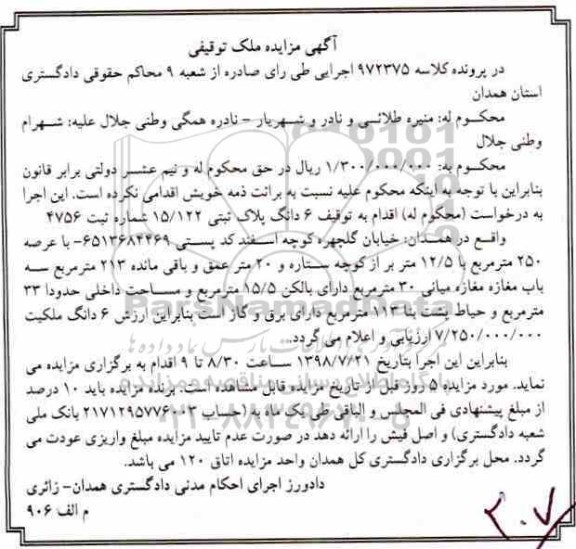 آگهی مزایده ملک توقیفی
در پرونده کلاسه ۹۷۲۳۷۵ اجرایی طی رای صادره از شعبه ۹ محاکم حقوقی دادگستری
استان همدان
محکوم له: منیره طلائی و نادر و شهریار – نادره همگی وطنی جلال علیه: شهرام
وطنی جلال
محکوم به: ۱/۳۰۰/۰۰۰/۰۰۰ ریال در حق محکوم له و نیم عشر دولتی برابر قانون
بنابراین با توجه به اینکه محکوم علیه نسبت به برائت ذمه خویش اقدامی نکرده است. این اجرا
به درخواست (محکوم له) اقدام به توقیف ۶ دانگ پلاک ثبتی ۱۵/۱۲۲ شماره ثبت ۴۷۵۶
واقع در همدان: خیابان گلچهره کوچه اسفند کد پستی ۶۵۱۳۶۸۴۴۶۹- با عرصه
۲۵۰ مترمربع با ۱۲/۵ متر بر از کوچه ستاره و ۲۰ متر عمق و باقی مانده ۲۱۳ مترمربع سه
باب مغازه مغازه میانی ۳۰ مترمربع دارای بالکن ۱۵/۵ مترمربع و مساحت داخلی حدودا ۳۳
مترمربع و حیاط پشت بنا ۱۱۳ مترمربع دارای برق و گاز است بنابراین ارزش ۶ دانگ ملکیت
۷/۲۵۰/۰۰۰/۰۰۰ ارزیابی و اعلام می گردد.
بنابراین این اجرا بتاریخ ۱۳۹۸/۷/۲۱ ساعت ۸/۳۰ تا ۹ اقدام به برگزاری مزایده می
نماید. مورد مزایده ۵ روز قبل از تاریخ مزایده قابل مشاهده است. برنده مزایده باید ۱۰ درصد
از مبلغ پیشنهادی فی المجلس و الباقی طی یک ماه به (حساب ۲۱۷۱۲۹۵۷۷۶۰۰۳ بانک ملی
شعبه دادگستری) و اصل فیش را ارائه دهد در صورت عدم تایید مزایده مبلغ واریزی عودت می
گردد. محل برگزاری دادگستری کل همدان واحد مزایده اتاق ۱۲۰ می باشد.
دادورز اجرای احکام مدنی دادگستری همدان- زائری
م الف ۹۰۶
۲۰۷
ParsNamadData